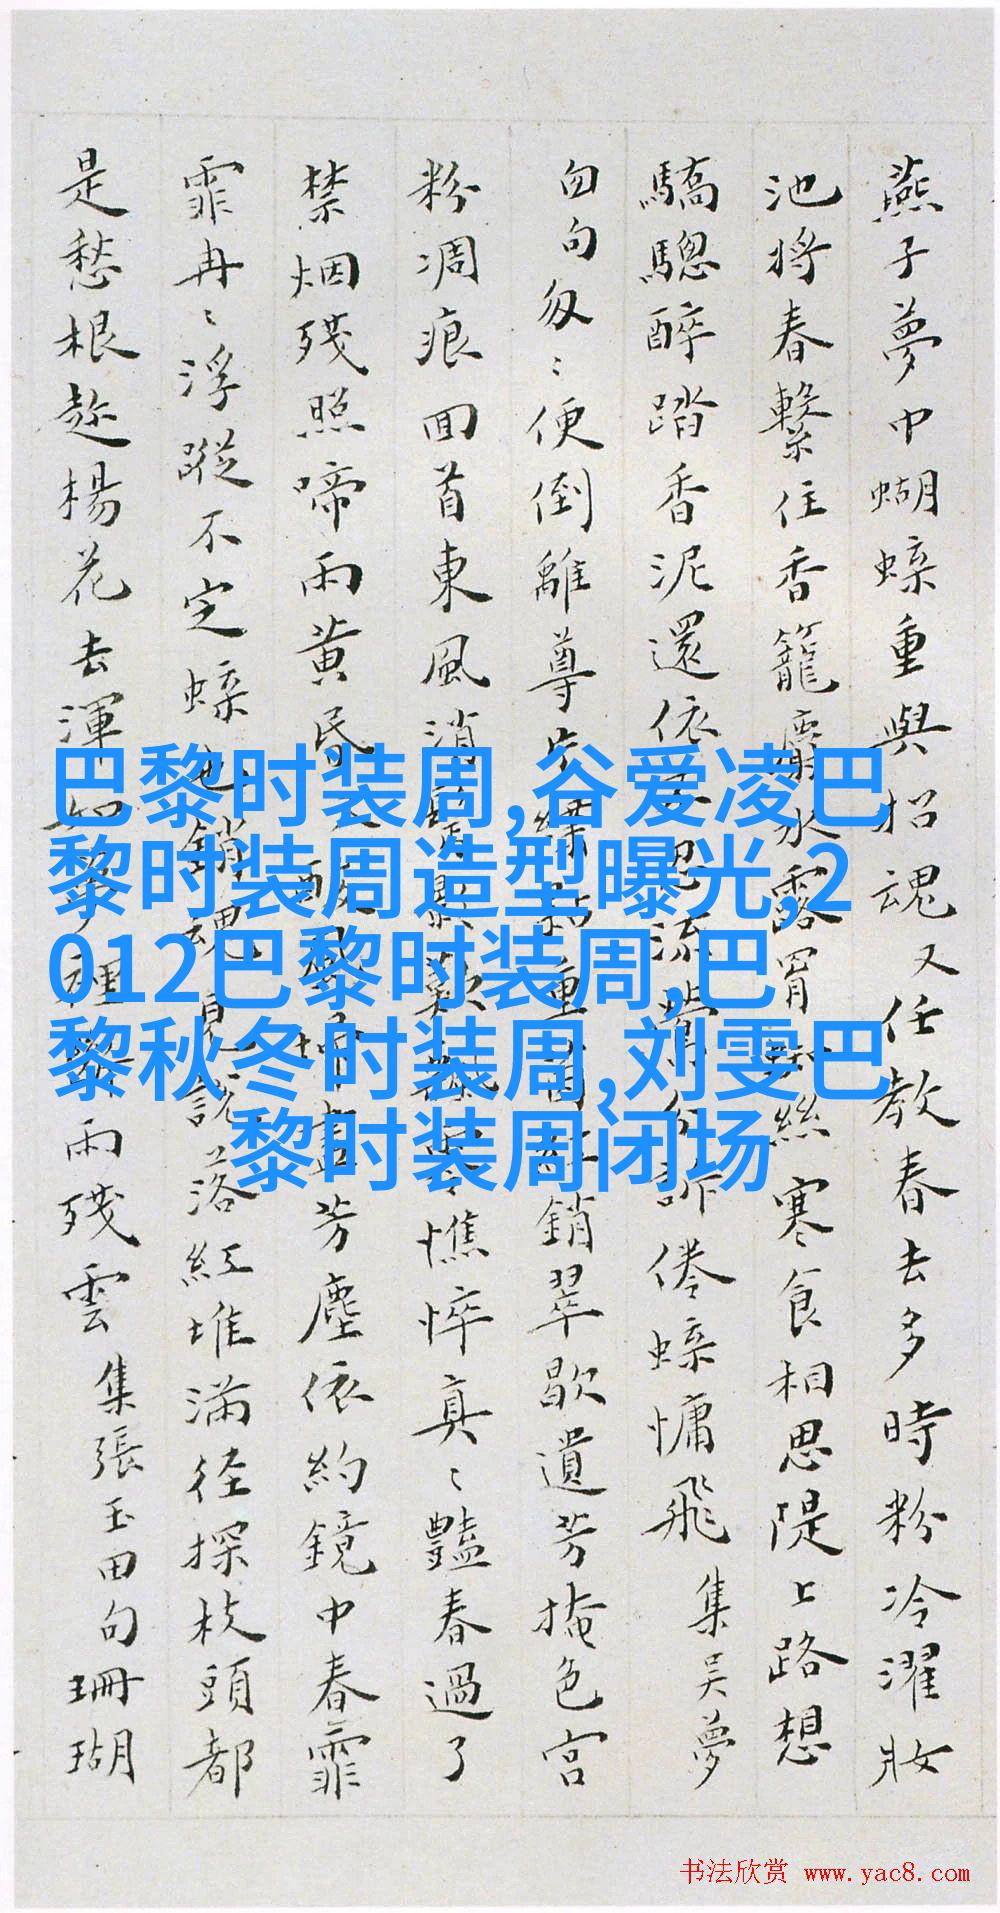 燕子夢中蝴蝶重與招魂又任教春去多時粉冷濯妝
池將春繫住香籠麝水露罥絲寒食相思隄上路想
驕驄醉踏香泥還依流訴倦蝶慵飛 集吴夢
句匆〻便倒離尊重銷翠歇遺芳掩色宮
粉凋痕回首東風消憔悴真〻豔春過了
禁烟殘照啼雨黄昏芳塵依約鏡中春霏
霏冉〻浮蹤不定蝶也銷魂見説落紅堆滿徑探枝頭都
是愁根趁楊花去渾如夢裡雨殘雲 集張玉田句珊瑚
巴黎时装周,谷爱凌巴
黎时装周造型曝光,2
012巴黎时装周,巴
黎秋冬时装周,刘雯巴
黎时装周闭场
书法欣赏 www.yac8.com